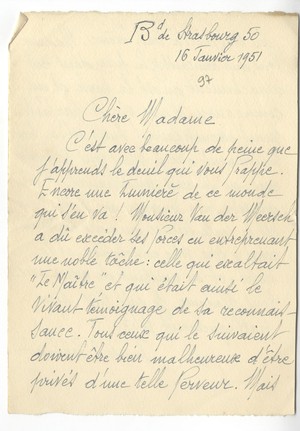 Bd de Strasbourg 50
16 Janvier 1951
97
Chère Madame
C'est avec beaucoup de peine que
j'apprends le deuil qui vous frappe.
Encore une lumière de ce monde
qui s'en va ! Monsieur Van der Meersch
a dû excéder ses forces en entreprenant
une noble tâche : celle qui exaltait
"Le Maître" et qui était aussi le
vivant témoignage de sa reconnais-
sance. Tous ceux qui le suivaient
doivent être bien malheureux d'être
privés d'une telle ferveur. Mais